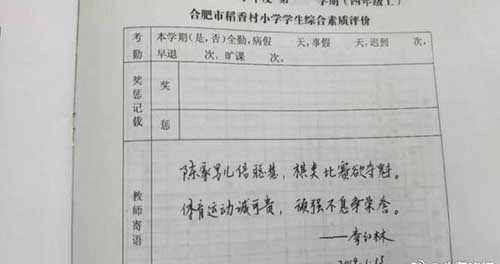 学期（四年级上）
合肥市稻香村小学学生综合素质评价
考勤
本学期（是，否）全勤，病假 天，事假 天，迟到 次，
早退 次，旷课 次。
奖惩记载
奖
惩
教师寄语
陈家男儿倍聪慧，棋类比赛欲夺魁。
体育运动诚可贵，顽强不息争荣誉。
——李红林
2019.1.15